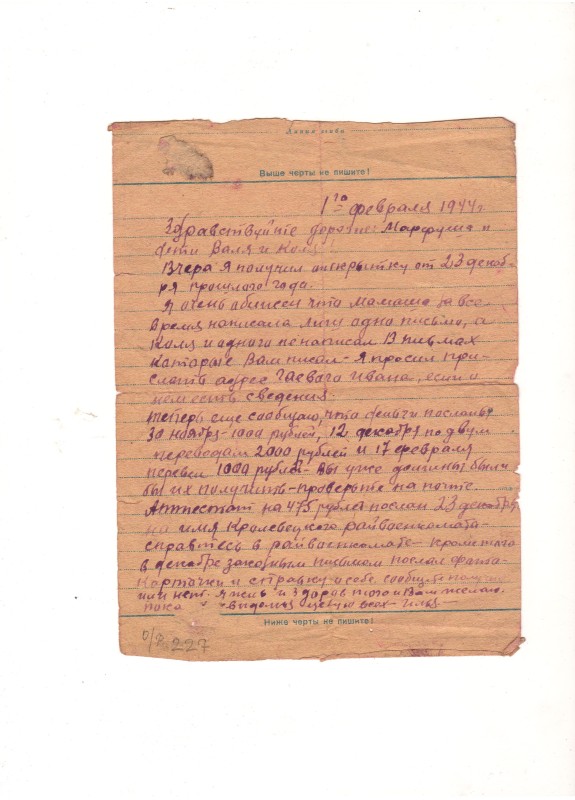 Линия сгиба
Выше черты не пишите!
1го февраля 1944г
Здравствуйте дорогие Марфуша и
дети Валя и Коля!
Вчера я получил открытку от 23 декаб-
ря прошлого года.
Я очень что мамаша за все
время написала лишь одно письмо, а
Коля и одного ненаписал в письмах
которые Вам писал - Я просил при-
слать адрес Гаевого Ивана, если о
нем есть сведения.
Теперь еще сообщаю, что деньги посланы
30 ноября 1000 рублей, 12 декабря по двум
переводам 2000 рублей и 17 февраля
перевел 1000 рублей - Вы уже должны были
бы их получить - проверьте на почте.
Аттестат на 475 рублей послан 23 декабря
на имя Кролевецкого райвоенкомата -
справтесь в райвоенкомате - Кроме того
в декабре заказным письмом послал фото-
карточки и справку о себе сообщите получили
или нет. Я жив и здоров того и Вам желаю.
пока видемая целую всех -
Ниже черты не пишите!
227